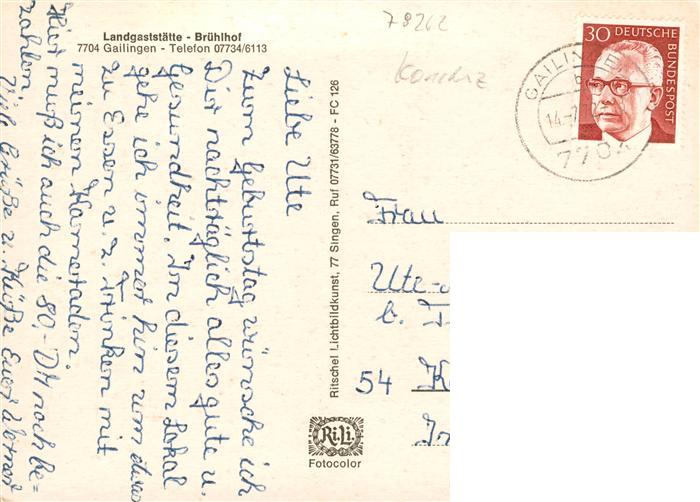 Landgaststätte - Brühlhof
7704 Gailingen - Telefon 07734/6113
Liebe Ute
Zum Geburtstag wünsche ich
Dir nachträglich alles gute u.
Gesundheit. In diesem Lokal
gehe ich immer hin um etwas
zu Essen u. z. Trinken mit
meinen Kameraden.
Hier muß ich auch die 80,- DM noch be-
zahlen
Viele Grüße u. Küße Euer Werner
Ritschel Lichtbildkunst, 77 Singen, Ruf 07731/63778 - FC 126
Ri.Li.
Fotocolor
78262
Konstanz
30 DEUTSCHE
BUNDESPOST
GAILINGEN
b
14.-7
770
Frau
Ute-
b.
54 K